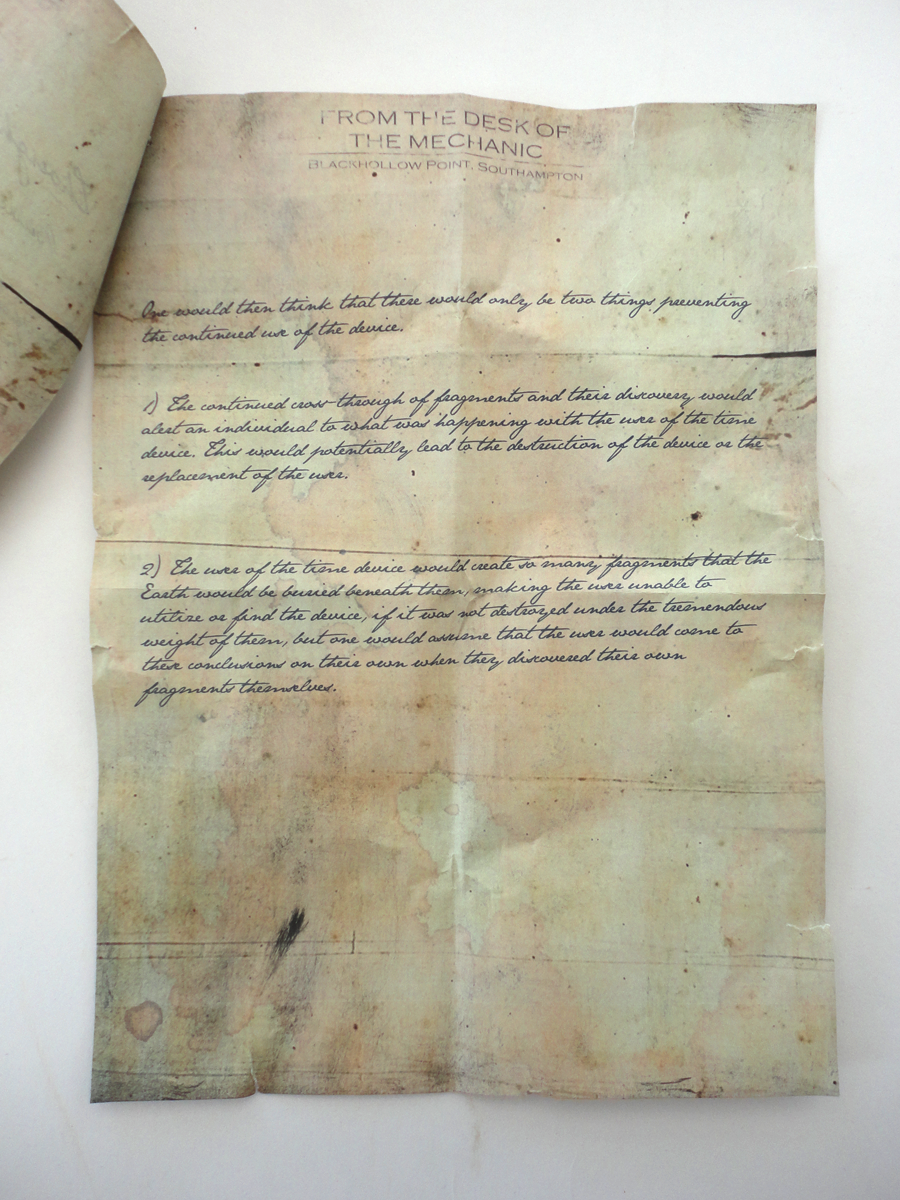 FROM THE DESK OF
THE MECHANIC
BLACKHOLLOW POINT, SOUTHAMPTON
One would then think that there would only be two things preventing
the continued use of the device.
1) The continued cross-through of fragments and their discovery would
alert an individual to what was happening with the user of the time
device. This would potentially lead to the destruction of the device or the
replacement of the user.
2) The user of the time device would create so many fragments that the
Earth would be buried beneath them, making the user unable to
utilize or find the device, if it was not destroyed under the tremendous
weight of them, but one would assume that the user would come to
these conclusions on their own when they discovered their own
fragments themselves.